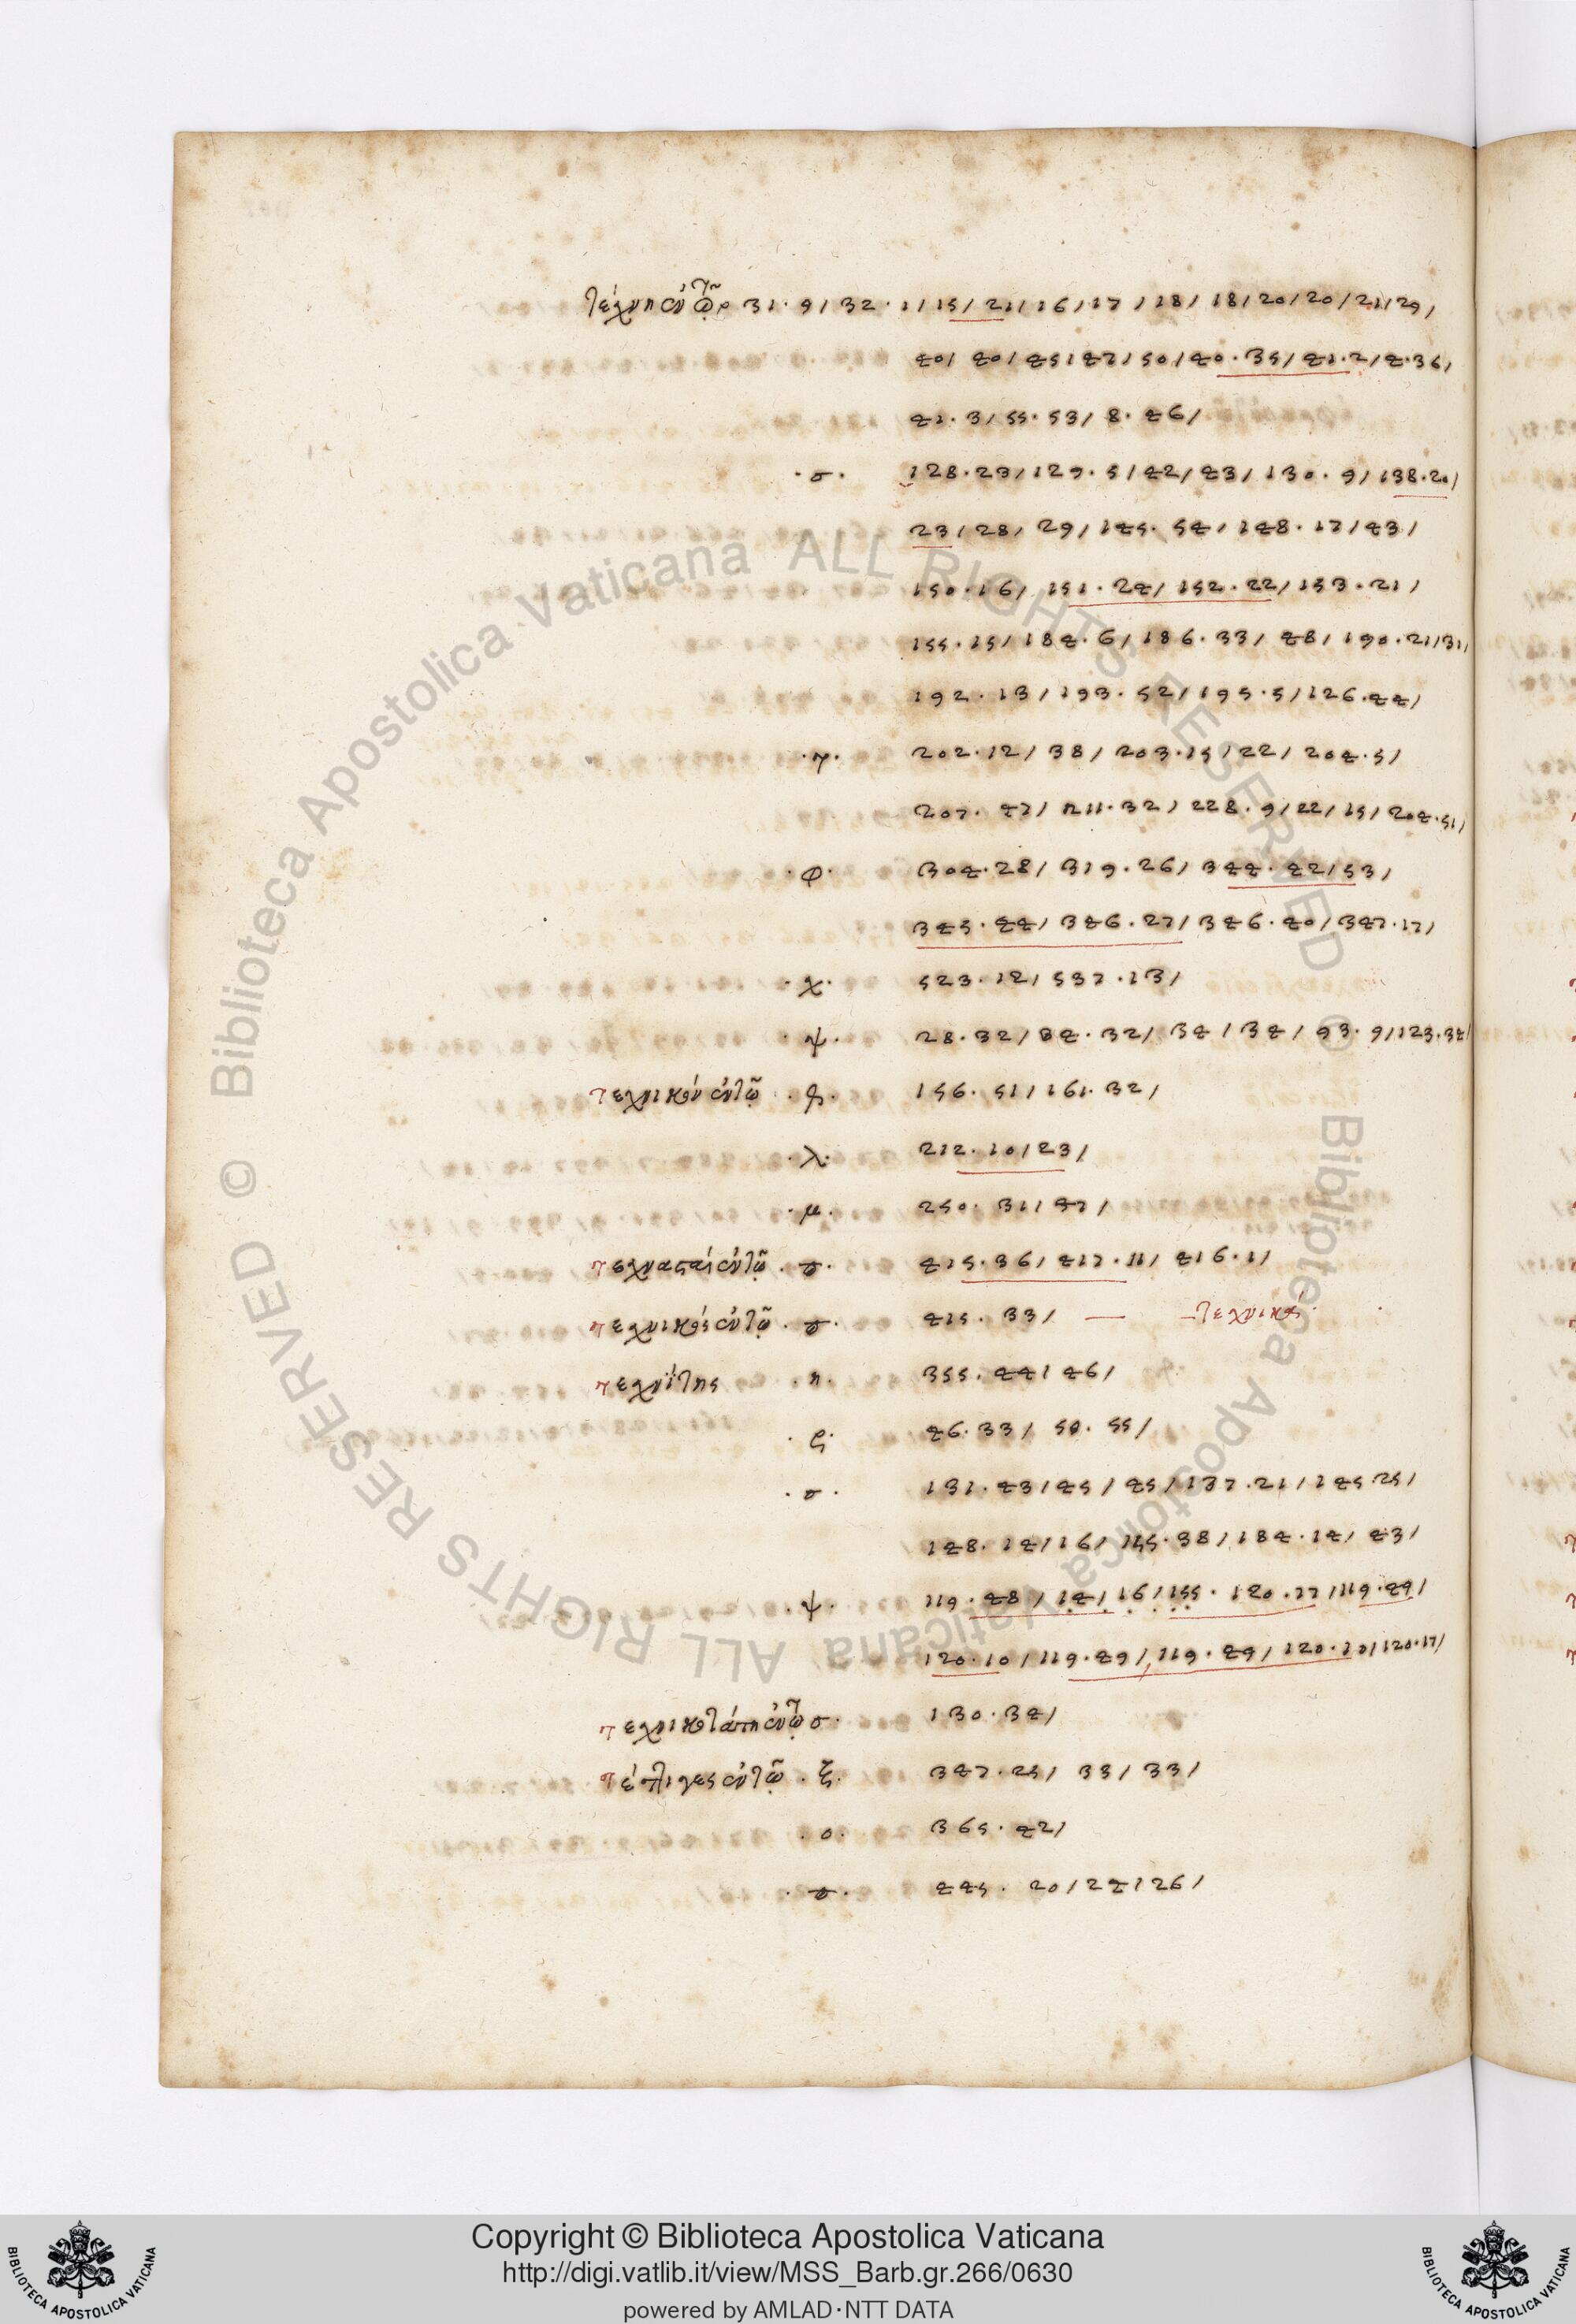 τέχνη ἐν τῷ ρ 31 · 9 / 32 · 1 / 15 / 21 / 16 / 17 / 18 / 18 / 20 / 20 / 21 / 29 /
40 / 40 / 45 / 47 / 50 / 40 · 35 / 41 · 2 / 4 · 36 /
41 · 3 / 55 · 53 / 8 · 46 /
· σ · 128 · 23 / 129 · 5 / 42 / 43 / 130 · 9 / 138 · 20 /
23 / 28 / 29 / 145 · 54 / 148 · 17 / 43 /
150 · 16 / 151 · 24 / 152 · 22 / 153 · 21 /
155 · 15 / 184 · 6 / 186 · 33 / 48 / 190 · 21 / 31 /
192 · 13 / 193 · 52 / 195 · 5 / 126 · 44 /
· τ · 202 · 12 / 38 / 203 · 15 / 22 / 204 · 5 /
207 · 47 / 211 · 32 / 228 · 9 / 22 / 15 / 204 · 51 /
· φ · 304 · 28 / 319 · 26 / 344 · 42 / 53 /
345 · 44 / 346 · 27 / 346 · 40 / 347 · 17 /
· χ · 523 · 12 / 537 · 13 /
· ψ · 28 · 32 / 34 · 32 / 34 / 34 / 93 · 9 / 123 · 34 /
τεχνικόν ἐν τῷ 156 · 51 / 161 · 32 /
· λ · 212 · 10 / 23 /
· μ · 250 · 31 / 47 /
τεχνασταί ἐν τῷ 415 · 36 / 417 · 11 / 416 · 1 /
τεχνικός ἐν τῷ 415 · 33 / — – τεχνικός ·
τεχνίτης · π · 355 · 44 / 46 /
· ρ · 46 · 33 / 50 · 55 /
· σ · 131 · 43 / 45 / 45 / 137 · 21 / 145 · 25 /
148 · 14 / 16 / 155 · 38 / 184 · 14 / 43 /
· ψ · 119 · 48 / 14 / 16 / 155 · 120 · 17 / 119 · 49 /
120 · 10 / 119 · 49 / 119 · 49 / 120 · 10 / 120 · 17 /
ἐν τῷ σ · 130 · 34 /
τέττιγες ἐν τῷ · ξ · 347 · 25 / 33 / 33 /
· ο · 365 · 42 /
445 · 20 / 24 / 26 /
© Biblioteca Apostolica Vaticana ALL RIGHTS RESERVED © Biblioteca Apostolica Vaticana ALL RIGHTS RESERVED
Copyright © Biblioteca Apostolica Vaticana
http://digi.vatlib.it/view/MSS_Barb.gr.266/0630
powered by AMLAD·NTT DATA
BIBLIOTECA APOSTOLICA VATICANA
BIBLIOTECA APOSTOLICA VATICANA